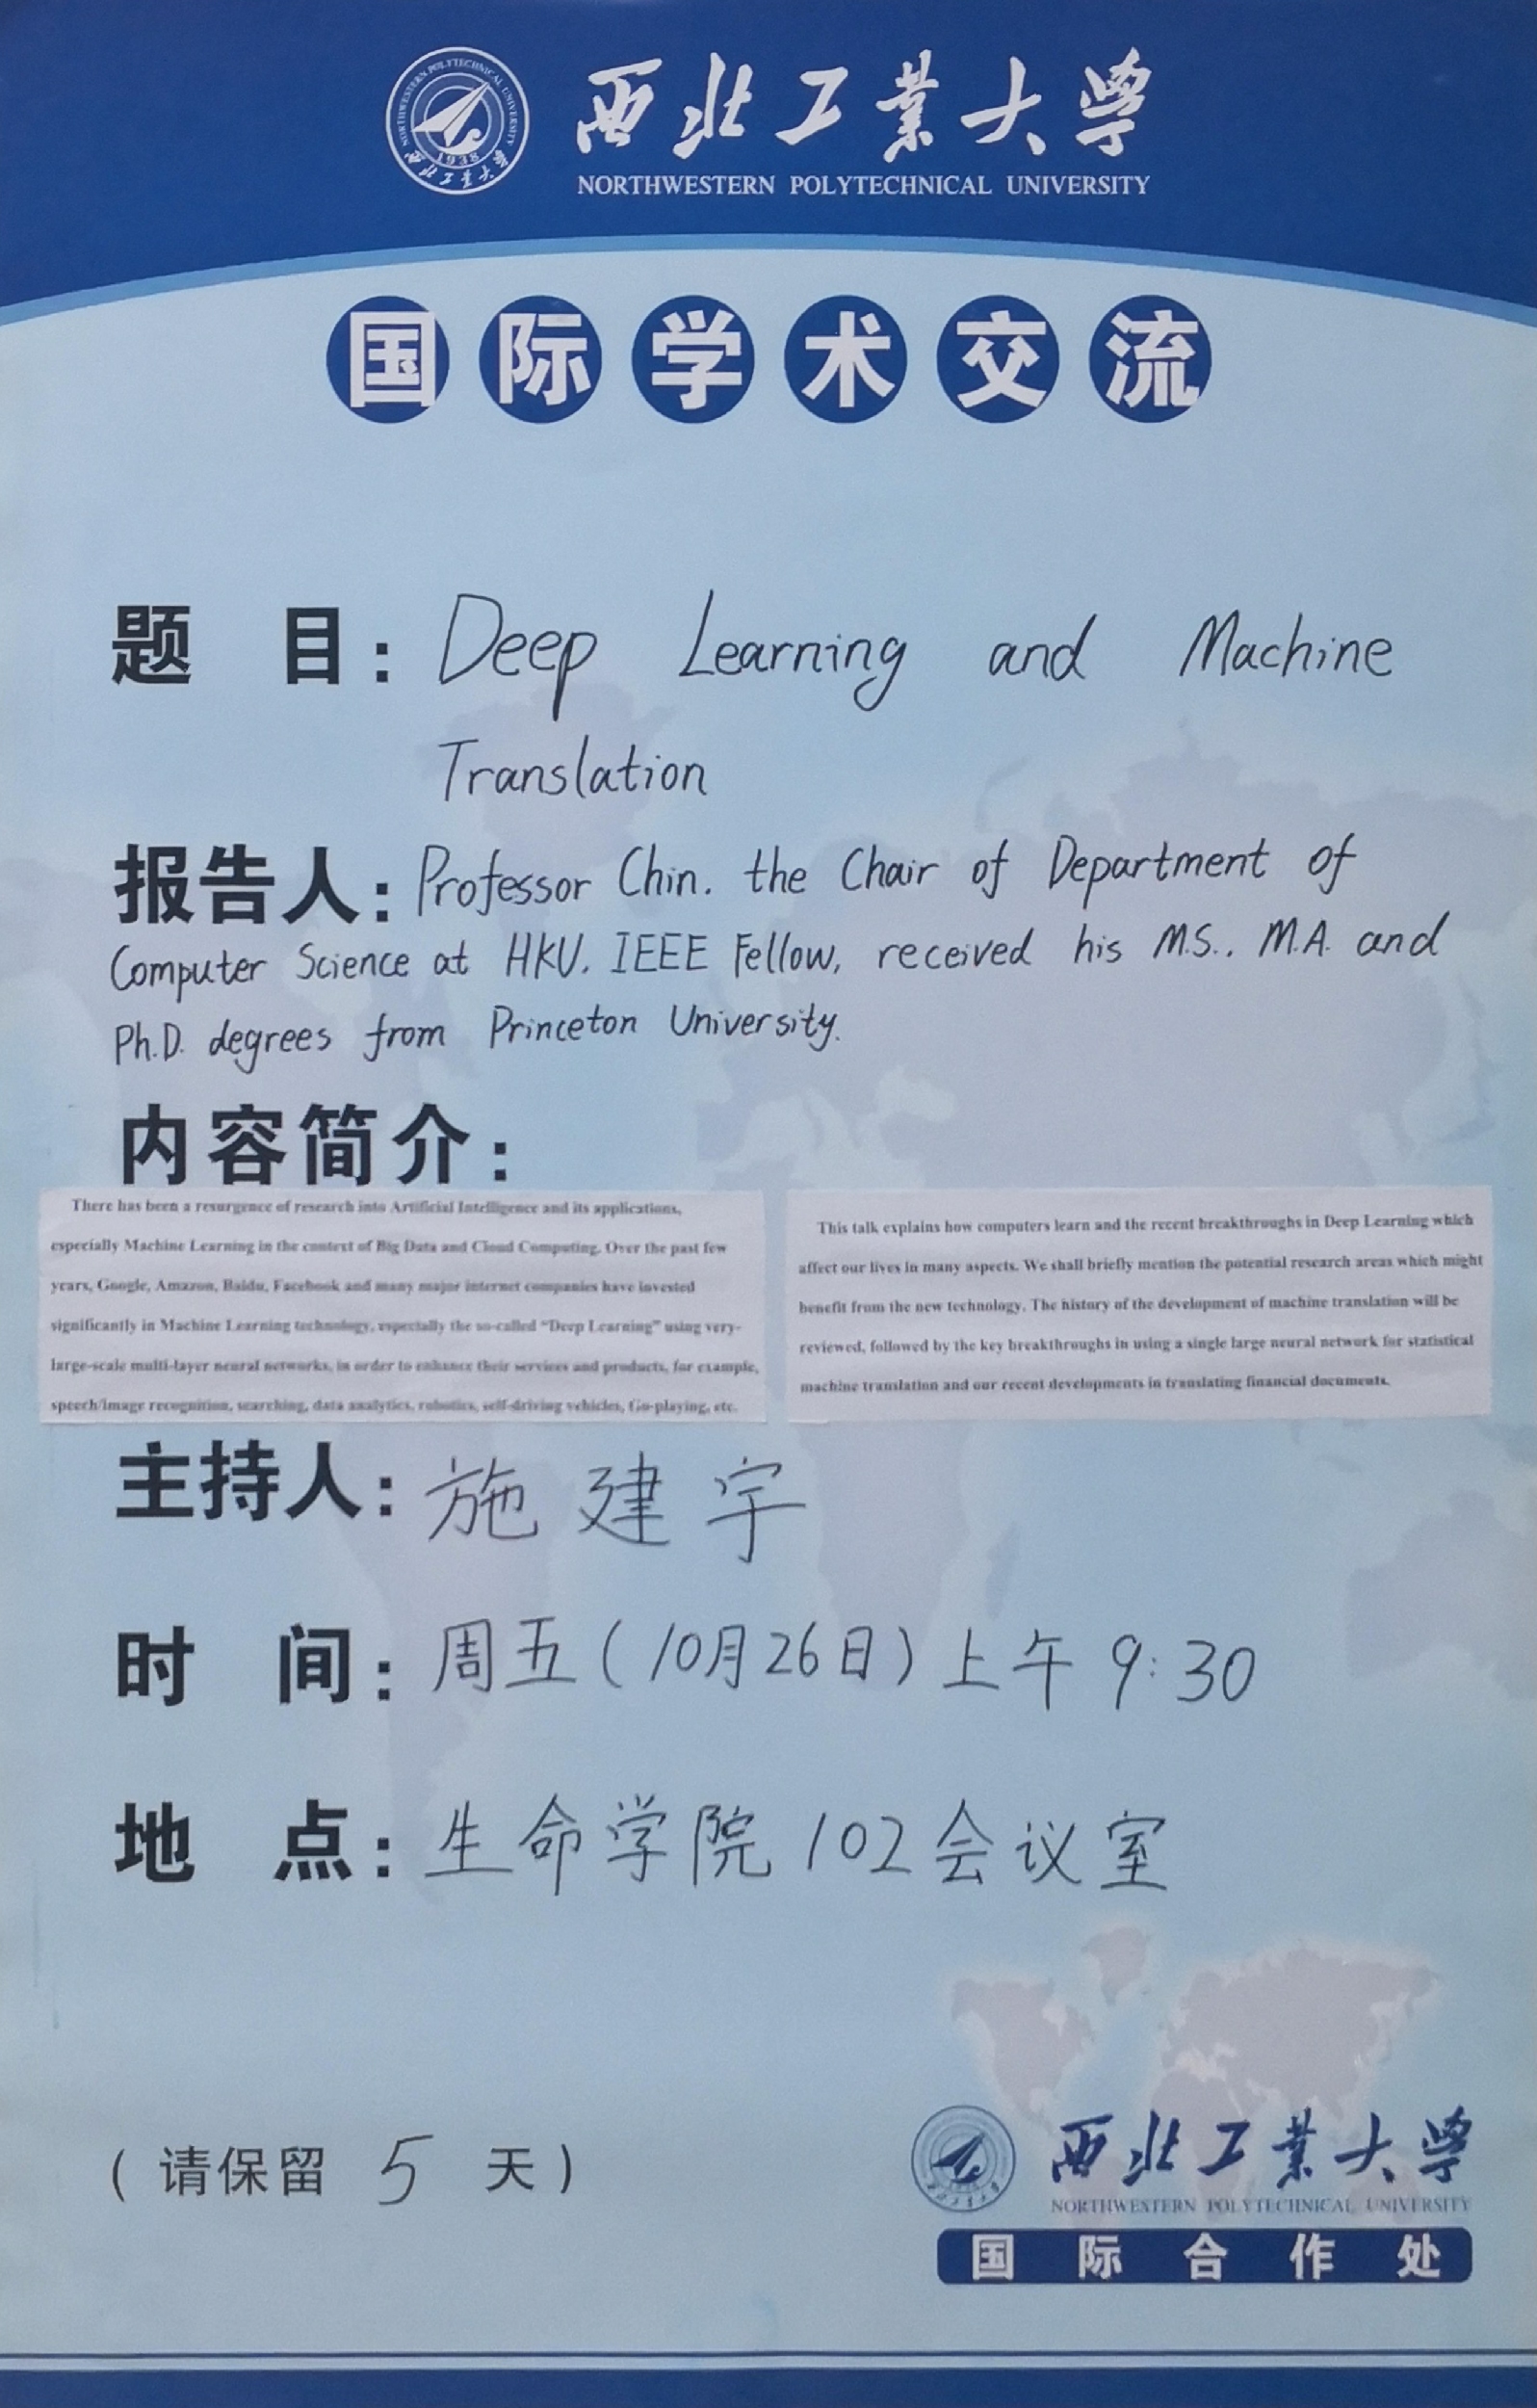 西北工业大学
NORTHWESTERN POLYTECHNICAL UNIVERSITY
NORTHWESTERN POLYTECHNICAL UNIVERSITY
1938
西北工业大学
国际学术交流
题 目：Deep Learning and Machine
Translation
报告人：Professor Chin. the Chair of Department of
Computer Science at HKU. IEEE Fellow, received his M.S., M.A. and
Ph.D. degrees from Princeton University.
内容简介：
There has been a resurgence of research into Artificial Intelligence and its applications,
especially Machine Learning in the context of Big Data and Cloud Computing. Over the past few
years, Google, Amazon, Baidu, Facebook and many major internet companies have invested
significantly in Machine Learning technology, especially the so-called “Deep Learning” using very-
large-scale multi-layer neural networks, in order to enhance their services and products, for example,
speech/image recognition, searching, data analytics, robotics, self-driving vehicles, Go-playing, etc.
This talk explains how computers learn and the recent breakthroughs in Deep Learning which
affect our lives in many aspects. We shall briefly mention the potential research areas which might
benefit from the new technology. The history of the development of machine translation will be
reviewed, followed by the key breakthroughs in using a single large neural network for statistical
machine translation and our recent developments in translating financial documents.
主持人：施建宇
时 间：周五(10月26日)上午9:30
地 点：生命学院102会议室
（请保留 5 天）
西北工业大学
NORTHWESTERN POLYTECHNICAL UNIVERSITY
国际合作处